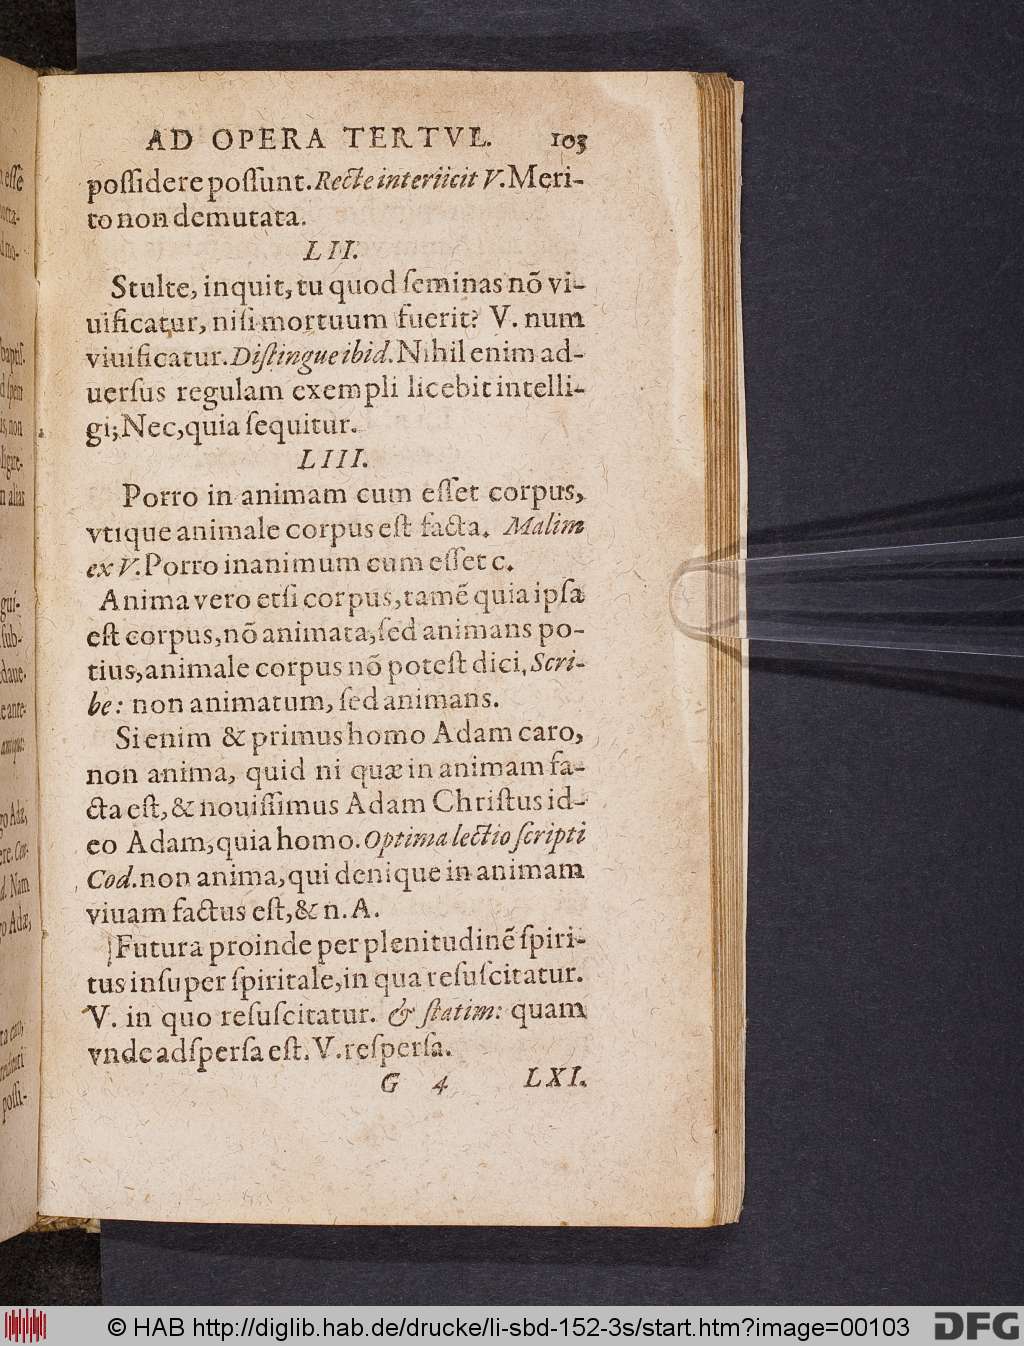 AD OPERA TERTVL. 103
poſſidere poſſunt. Recte interiicit V. Meri-
to non demutata.
LII.
Stulte, inquit, tu quod ſeminas nõ vi-
uificatur, niſi mortuum fuerit? V. num
viuificatur. Diſtingue ibid. Nihil enim ad-
uerſus regulam exempli licebit intelli-
gi; Nec, quia ſequitur.
LIII.
Porro in animam cum eſſet corpus,
vtique animale corpus eſt facta. Malim
ex V. Porro inanimum cum eſſet c.
Anima vero etſi corpus, tamẽ quia ipſa
eſt corpus, nõ animata, ſed animans po-
tius, animale corpus nõ poteſt dici, Scri-
be: non animatum, ſed animans.
Si enim & primus homo Adam caro,
non anima, quid ni quæ in animam fa-
cta eſt, & nouiſſimus Adam Chriſtus id-
eo Adam, quia homo. Optima lectio ſcripti
Cod. non anima, qui denique in animam
viuam factus eſt, & n. A.
Futura proinde per plenitudinẽ ſpiri-
tus inſuper ſpiritale, in qua reſuſcitatur.
V. in quo reſuſcitatur. & ſtatim: quam
vnde adſperſa eſt. V. reſperſa.
G 4 LXI.
© HAB http://diglib.hab.de/drucke/li-sbd-152-3s/start.htm?image=00103
DFG